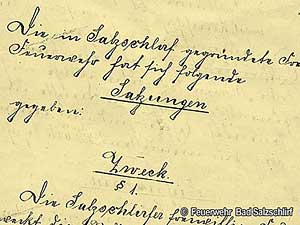 Die in Salzschlirf gegründete Frei
Feuerwehr hat sich folgende
Satzungen
gegeben:
Zweck.
§ 1.
Die Salzschlirfer freiwillige Feu
© Feuerwehr Bad Salzschlirf